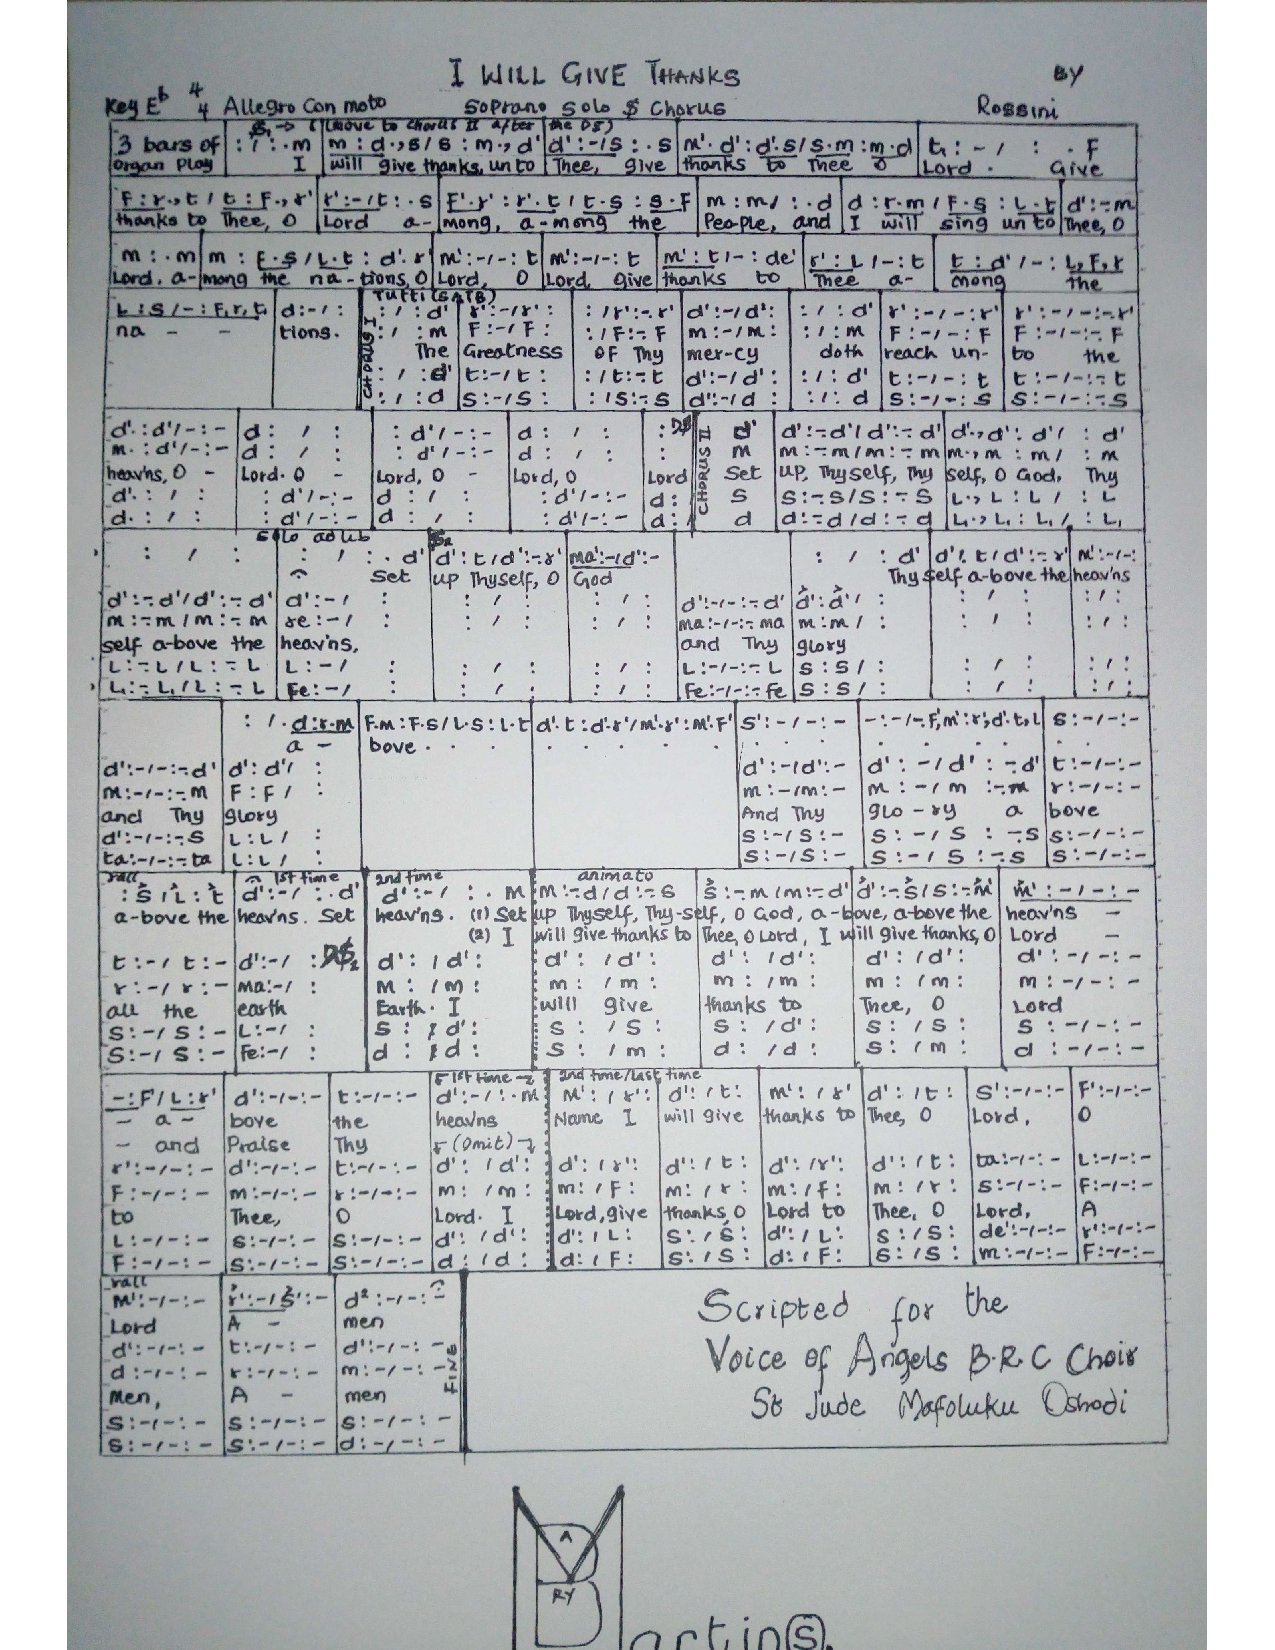 I WILL GIVE THANKS
BY
Key Eb 4/4 Allegro Con moto
Soprano Solo $ Chorus
Rossini
(Move to Chorus II after the DS)
3 bars of : / : . m | m : d ., s / s : m ., d' | d' : - / s : . s | m' . d' : d' . s / s . m : m . d | t, : - / : . F
Organ Play I will give thanks, un to Thee, give thanks to Thee O Lord . Give
F : r ., t / t : F ., r' | r' : - / t : . s | F' . r' : r' . t / t . s : s . F | m : m / : . d | d : r . m / F . s : L . t | d' : - . m
thanks to Thee, O Lord a- mong, a-mong the People, and I will sing un to Thee, O
m : . m | m : F . s / L . t : d' . r | m' : - / - : t | m' : - / - : t | m' : t / - : de' | r' : L / - : t | t : d' / - : L, F, r
Lord, a- mong the na-tions, O Lord, O Lord, give thanks to Thee a- mong the
Tutti (SATB)
L : s / - : F, r, t, | d : - / : | : / : d' | r' : - / r' : | : / r' : - . r' | d' : - / d' : | : / : d' | r' : - / - : r' | r' : - / - : - . r'
CHORUS I
: / : m | F : - / F : | : / F : - F | m : - / m : | : / : m | F : - / - : F | F : - / - : - F
na - - tions. The Greatness OF Thy mer-cy doth reach un- to the
: / : d' | t : - / t : | : / t : - t | d' : - / d' : | : / : d' | t : - / - : t | t : - / - : - t
: / : d | s : - / s : | : / s : - s | d' : - / d : | : / : d | s : - / - : s | s : - / - : - s
d' : d' / - : - | d : / : | : d' / - : - | d : / : | : DS | d' | d' : - d' / d' : - d' | d' ., d' : d' / : d'
CHORUS II
m . : d' / - : - | d : / : | : d' / - : - | d : / : | : | m | m : - m / m : - m | m ., m : m / : m
heav'ns, O - Lord. O - Lord, O - Lord, O Lord Set up, Thyself, Thy self, O God, Thy
d' . : / : | : d' / - : - | d : / : | : d' / - : - | d : | s | s : - s / s : - s | L ., L : L / : L
d . : / : | : d' / - : - | d : / : | : d' / - : - | d : | d | d : - d / d : - d | L, ., L, : L, / : L,
Solo ad lib
: / : | : / : . d' | d' : t / d' : - r' | ma' : - / d' : - | : / : d' | d' : t / d' : - r' | m' : - / - :
Set up Thyself, O God Thy self a-bove the heav'ns
d' : - d' / d' : - d' | d' : - / : | : / : | : / : | d' : - / - : - d' | d' : d' / : | : / : | : / :
m : - m / m : - m | re : - / : | : / : | : / : | ma : - / - : - ma | m : m / : | : / : | : / :
self a-bove the heav'ns, and Thy glory
L : - L / L : - L | L : - / : | : / : | : / : | L : - / - : - L | s : s / : | : / : | : / :
L, : - L, / L : - L | Fe : - / : | : / : | : / : | Fe : - / - : - Fe | s : s / : | : / : | : / :
: / . d : r . m | F . m : F . s / L . s : L . t | d' . t : d' . r' / m' . r' : m' . F' | s' : - / - : - | - : - / - F', m' : r', d' . t, L | s : - / - : -
a - bove . . . . . . .
d' : - / - : - d' | d' : d' / : | d' : - / d' : - | d' : - / d' : - d' | t : - / - : -
m : - / - : - m | F : F / : | m : - / m : - | m : - / m : - m | r : - / - : -
and Thy glory And Thy glo - ry a bove
d' : - / - : - s | L : L / : | s : - / s : - | s : - / s : - s | s : - / - : -
ta : - / - : - ta | L : L / : | s : - / s : - | s : - / s : - s | s : - / - : -
rall 1st time 2nd time animato
: s / L : t | d' : - / : . d' | d' : - / : . m | m : - d / d : - s | s : - m / m : - d' | d' : - s / s : - m' | m' : - / - : -
a-bove the heav'ns. Set heav'ns. (1) Set up Thyself, Thy-self, O God, a-bove, a-bove the heav'ns -
(2) I will give thanks to Thee, O Lord, I will give thanks, O Lord -
t : - / t : - | d' : - / : DS2 | d' : / d' : | d' : / d' : | d' : / d' : | d' : / d' : | d' : - / - : -
r : - / r : - | ma : - / : | m : / m : | m : / m : | m : / m : | m : / m : | m : - / - : -
all the earth Earth. I will give thanks to Thee, O Lord
s : - / s : - | L : - / : | s : / d' : | s : / s : | s : / d' : | s : / s : | s : - / - : -
s : - / s : - | Fe : - / : | d : / d : | s : / m : | d : / d : | s : / m : | d : - / - : -
1st time 2nd time/Last time
- : F' / L : r' | d' : - / - : - | t : - / - : - | d' : - / : . m | m' : / r' : | d' : / t : | m' : / r' | d' : / t : | s' : - / - : - | F' : - / - : -
- a - bove the heav'ns Name I will give thanks to Thee, O Lord, O
- and Praise Thy (Omit)
r' : - / - : - | d' : - / - : - | t : - / - : - | d' : / d' : | d' : / r' : | d' : / t : | d' : / r' : | d' : / t : | ta : - / - : - | L : - / - : -
F : - / - : - | m : - / - : - | r : - / - : - | m : / m : | m : / F : | m : / r : | m : / F : | m : / r : | s : - / - : - | F : - / - : -
to Thee, O Lord. I Lord, give thanks, O Lord to Thee, O Lord, A
L : - / - : - | s : - / - : - | s : - / - : - | d' : / d' : | d' : / L : | s : / s : | d' : / L : | s : / s : | de' : - / - : - | r' : - / - : -
F : - / - : - | s : - / - : - | s : - / - : - | d : / d : | d : / F : | s : / s : | d : / F : | s : / s : | m : - / - : - | F : - / - : -
rall
m' : - / - : - | r' : - / s' : - | d² : - / - : -
Lord A - men
d' : - / - : - | t : - / - : - | d' : - / - : -
d : - / - : - | r : - / - : - | m : - / - : -
FINE
Men, A - men
s : - / - : - | s : - / - : - | s : - / - : -
s : - / - : - | s : - / - : - | d : - / - : -
Scripted for the
Voice of Angels B.R.C Choir
St Jude Mafoluku Oshodi
A
RY
artin(s).